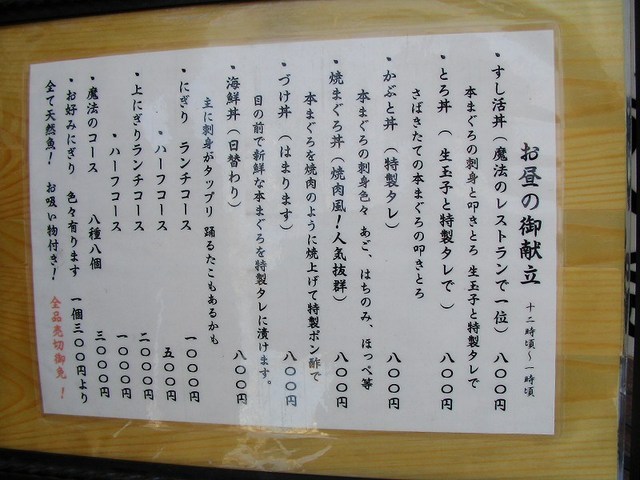 お昼の御献立 十二時頃～一時頃
・すし活丼（魔法のレストランで一位）八〇〇円
本まぐろの刺身と叩きとろ 生玉子と特製タレで
・とろ丼 （生玉子と特製タレで ）八〇〇円
さばきたての本まぐろの叩きとろ
・かぶと丼 （特製タレ）八〇〇円
本まぐろの刺身色々 あご、はちのみ、ほっぺ等
・焼まぐろ丼（焼肉風！人気抜群）八〇〇円
本まぐろを焼肉のように焼上げて特製ポン酢で
・づけ丼 （はまります）八〇〇円
目の前で新鮮な本まぐろを特製タレに漬けます。
・海鮮丼（日替わり）八〇〇円
主に刺身がタップリ 踊るたこもあるかも
・にぎり ランチコース 一〇〇〇円
・ハーフコース 五〇〇円
・上にぎりランチコース 二〇〇〇円
・ハーフコース 一〇〇〇円
・魔法のコース 八種八個 三〇〇〇円
・お好みにぎり 色々有ります 一個三〇〇円より
全て天然魚！ お吸い物付き！ 全品売切御免！